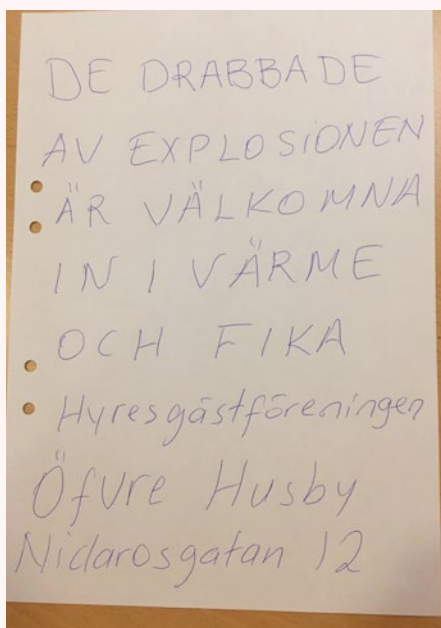 DE DRABBADE
AV EXPLOSIONEN
ÄR VÄLKOMNA
IN I VÄRME
OCH FIKA
Hyresgästföreningen
Öfvre Husby
Nidarosgatan 12